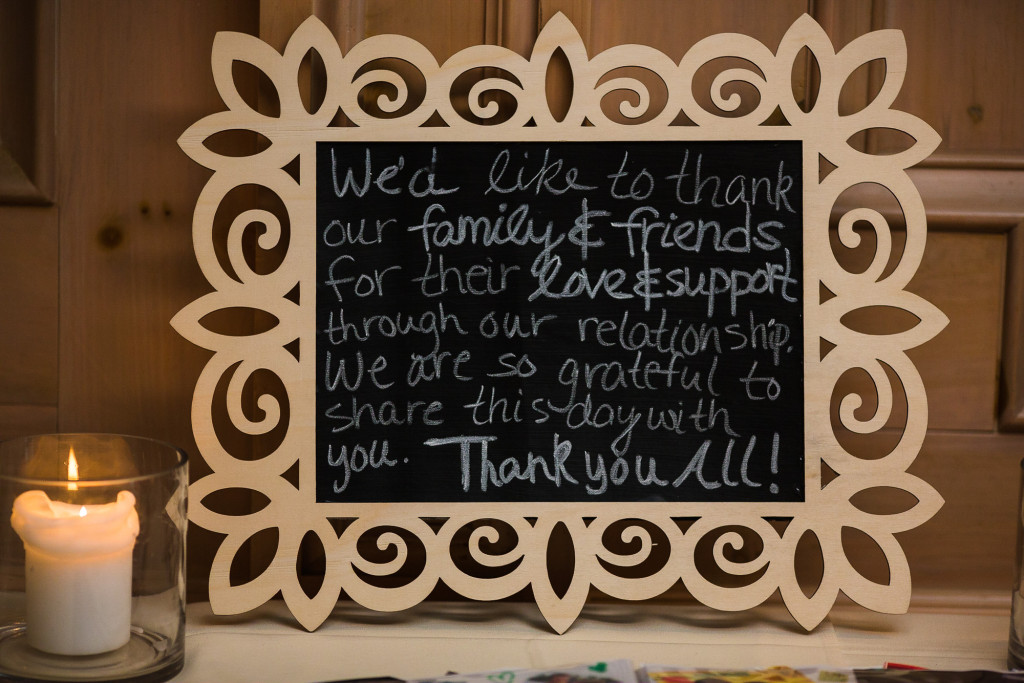 We'd like to thank
our family & friends
for their love & support
through our relationship.
We are so grateful to
share this day with
you. Thank you All!